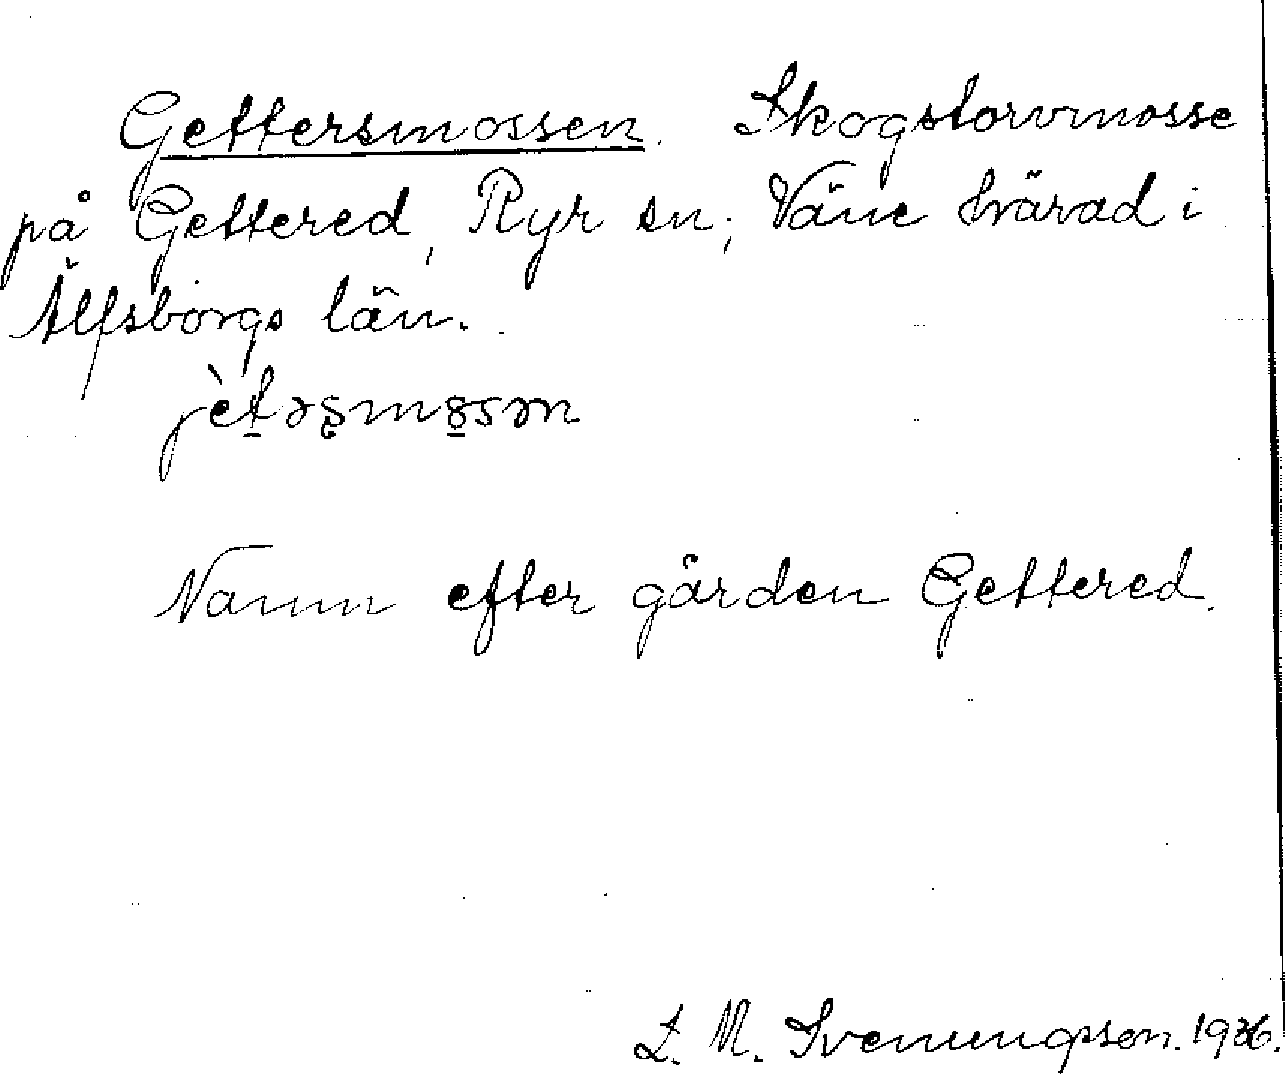 Gettersmossen. Skogstorvmosse
på Gettered, Ryr sn; Väne härad i
Älfsborgs län.
jèt̲əʂmo̲sən
Namn efter gården Gettered.
L. M. Svenungsson. 1926.